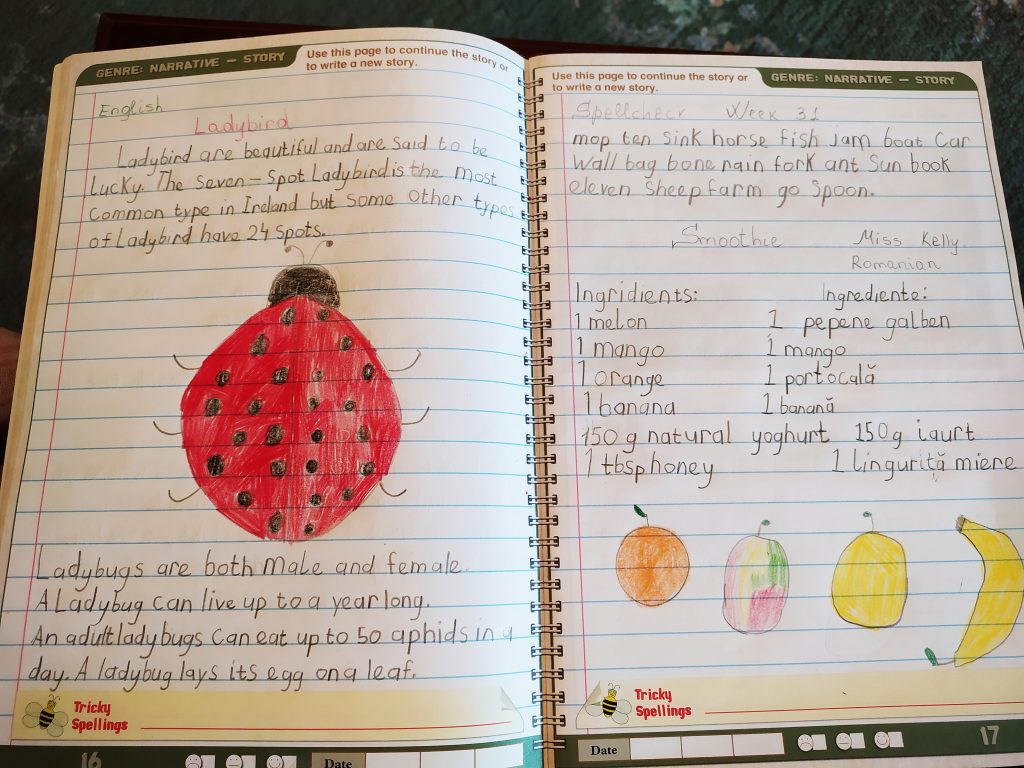 GENRE: NARRATIVE – STORY
Use this page to continue the story or
to write a new story.
English
Ladybird
Ladybird are beautiful and are said to be
Lucky. The Seven-Spot Ladybird is the most
Common type in Ireland but some other types
of Ladybird have 24 spots.
Ladybugs are both male and female.
A Ladybug can live up to a year long.
An adult ladybugs can eat up to 50 aphids in a
day. A ladybug lays its egg on a leaf.
Tricky
Spellings
16
Date
Use this page to continue the story or
to write a new story.
GENRE: NARRATIVE – STORY
Spellcheck Week 31
mop ten sink horse fish jam boat Car
Wall bag bone rain fork ant Sun book
eleven sheep farm go spoon.
Smoothie Miss Kelly
Romanian
Ingridients: Ingrediente:
1 melon 1 pepene galben
1 mango 1 mango
1 orange 1 portocală
1 banana 1 banană
150 g natural yoghurt 150g iaurt
1 tbsp honey 1 linguriță miere
Tricky
Spellings
Date
17